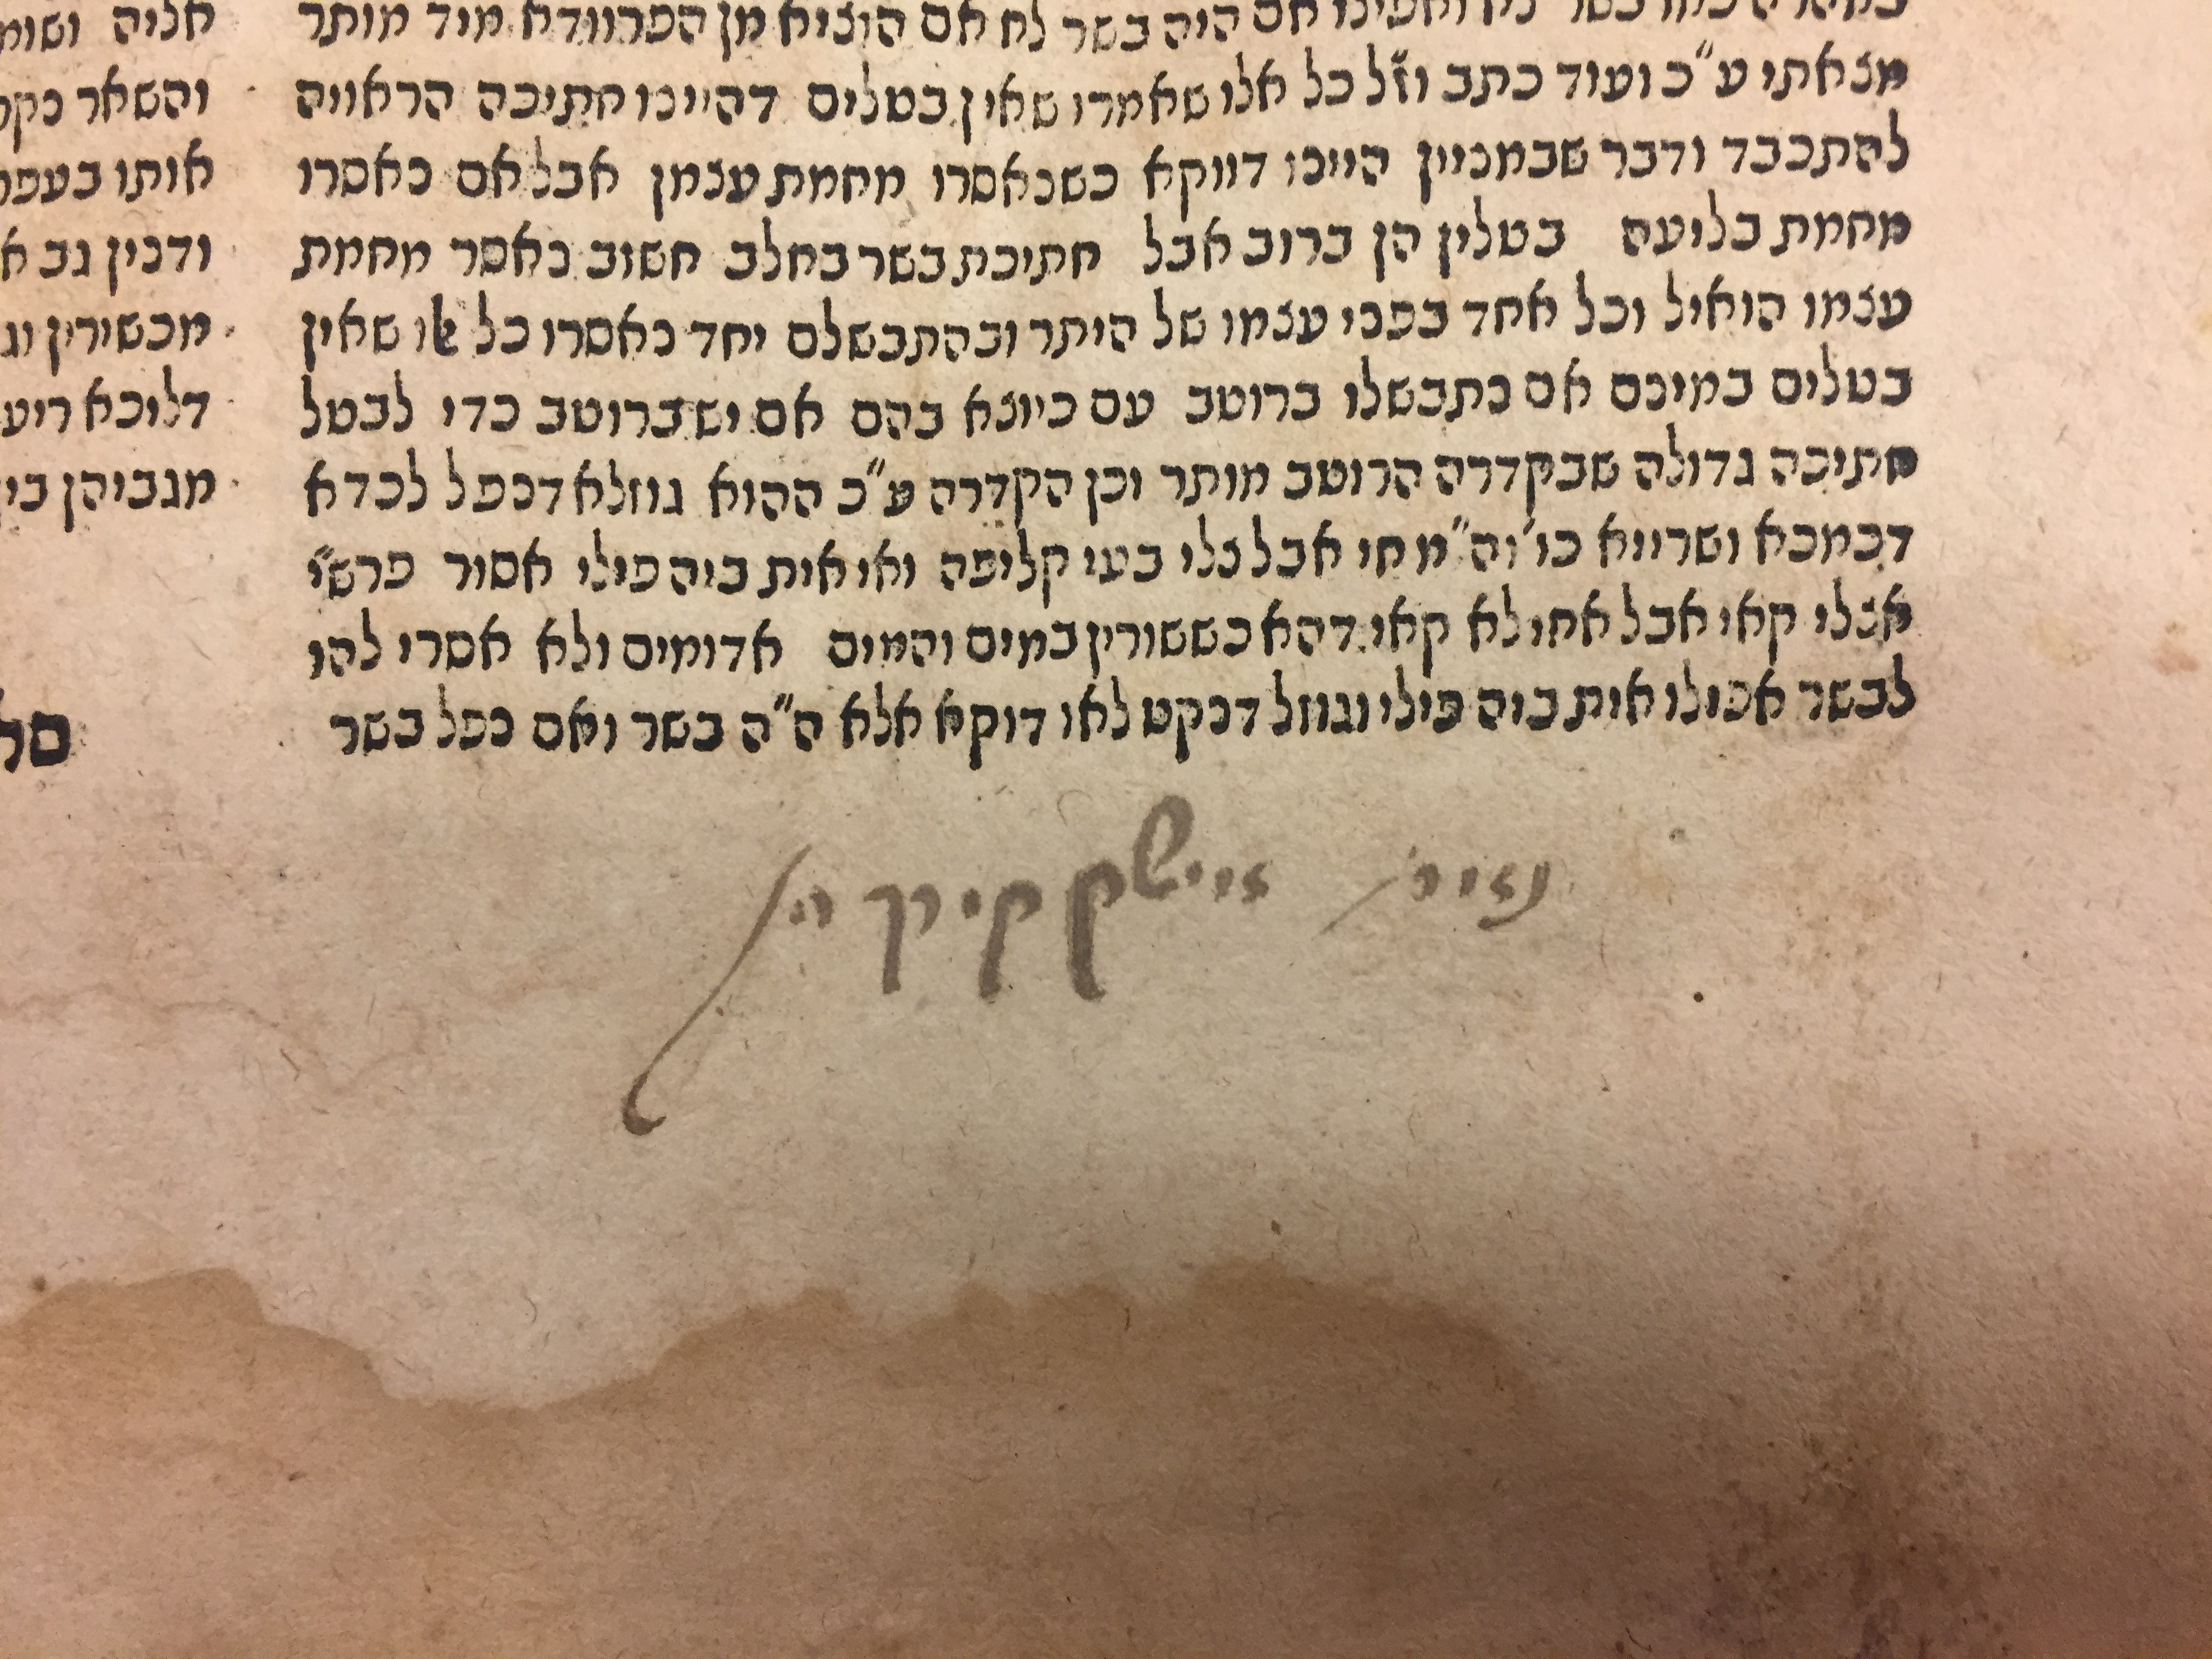 היה בשר לח אם הוציא מן הפרוודא מיד מותר
מצאתי ע"כ ועוד כתב וז"ל כל אלו שאמרו שאין בטלים דהיינו חתיכה הראויה
להתכבד ודבר שבמניין היינו דווקא כשנאסרו מחמת עצמן אבל אם נאסרו
מחמת בליעה בטלין הן ברוב אבל חתיכת בשר בחלב חשוב נאסר מחמת
עצמו הואיל וכל אחד בפני עצמו של היתר ובהתבשלם יחד נאסרו כל אלו שאין
בטלים במינם אם נתבשלו ברוטב עם כיוצא בהם אם יש ברוטב כדי לבטל
חתיכה גדולה שבקדרה הרוטב מותר וכן הקדרה ע"כ ההוא גוזלא דנפל לכדא
דכמכא ושרייא כו' וה"מ חי אבל צלי בעי קליפה ואי אית ביה פילי אסור פרש"י
אצלי קאי אבל אחי לא קאי דהא כששורין במים והמים אדומים ולא אסרי להו
לבשר אפילו אית ביה פילי וגוזל דנקט לאו דוקא אלא ה"ה בשר ואם נפל בשר
והשאר
אותו
ודכין גב
מכשירין
דליכא
מגביהן